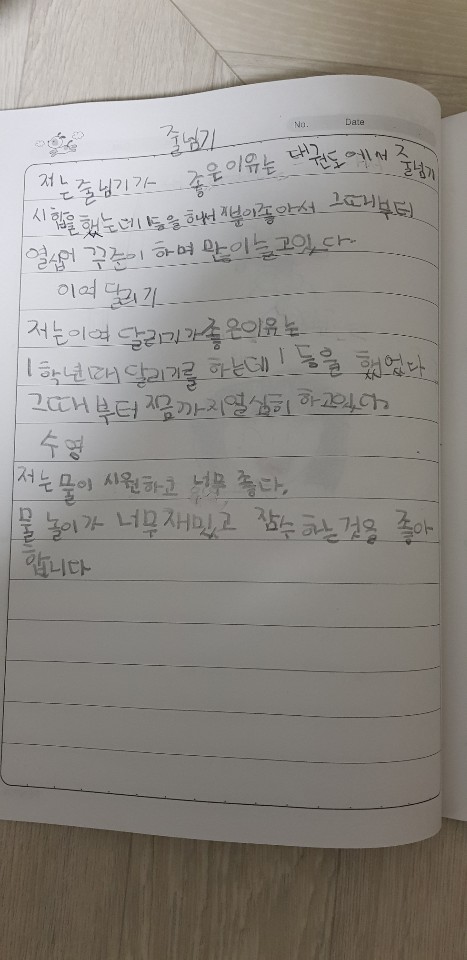 No. Date
줄넘기
저는 줄넘기가 좋은이유는 태권도에서 줄넘기
시합을 했는데 1등을 해서 기분이좋아서 그때부터
열심머 꾸준이 하며 많이늘고있다.
이여달리기
저는이여 달리기가좋은이유는
1학년때 달리기를 하는데 1등을 했었다
그때부터 지금까지열심히 하고있다.
수영
저는 물이 시원하고 너무 좋다.
물놀이가 너무재밌고 잠수하는것을 좋아
합니다